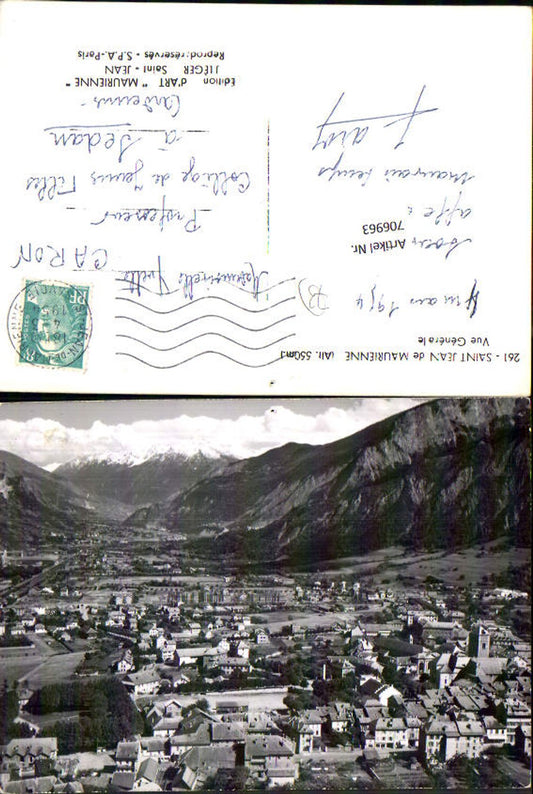 261 - SAINT JEAN de MAURIENNE (Alt. 550m)
Vue Générale
mars 1954
Artikel Nr.
706963
mauvais temps
Mademoiselle Yvette
CARON
Professeur
Collège de Jeunes Filles
à Sedan
Ardennes
Edition d'ART " MAURIENNE "
J.LÉGER Saint - JEAN
Reprod: réservés - S.P.A.-Paris